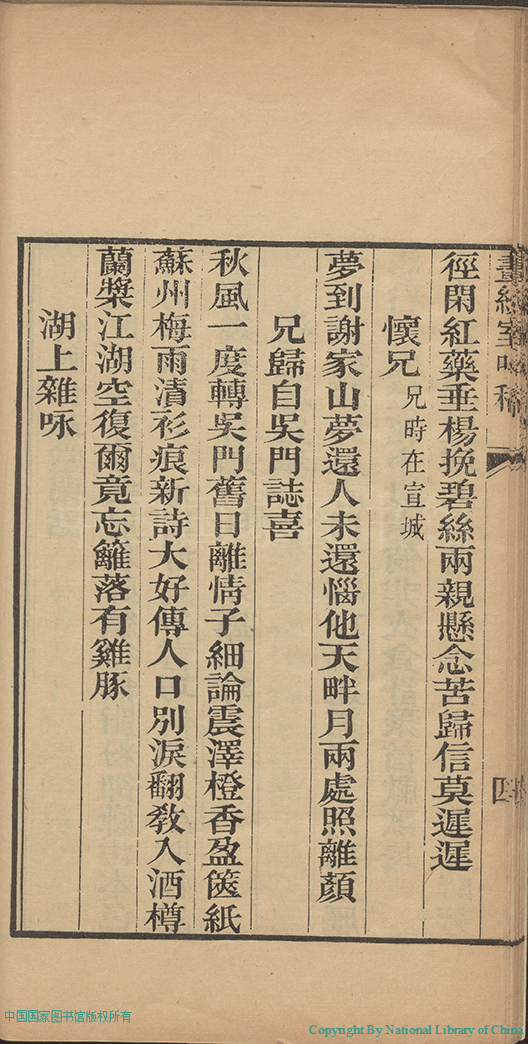 徑閑紅藥垂楊挽碧絲兩親懸念苦歸信莫遲遲
懷兄 兄時在宣城
夢到謝家山夢還人未還惱他天畔月兩處照離顏
兄歸自吳門誌喜
秋風一度轉吳門舊日離情子細論震澤橙香盈篋紙
蘇州梅雨漬衫痕新詩大好傳人口別淚翻敎入酒樽
蘭槳江湖空復爾竟忘籬落有雞豚
湖上雜咏
中国国家图书馆版权所有
Copyright By National Library of China